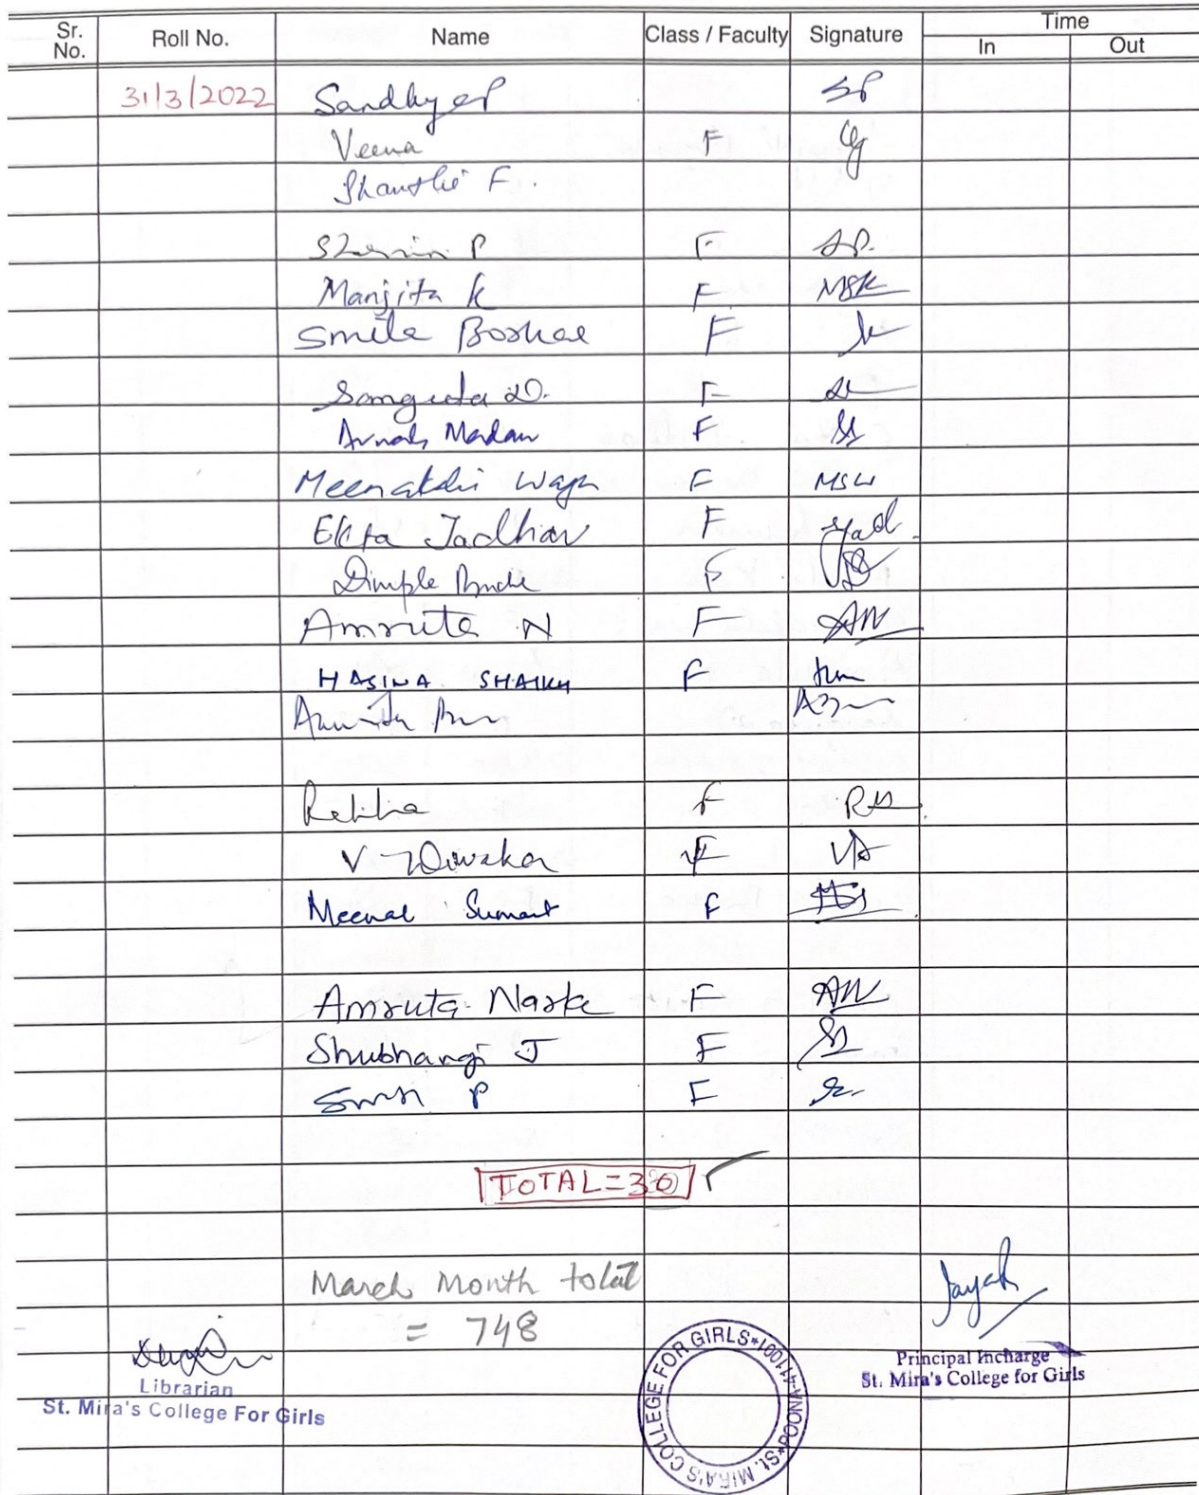 Sr. No. Roll No. Name Class / Faculty Signature Time
In Out
31/3/2022 Sandhya P SP
Veena F
Shanthi F.
Sherin P F SP.
Manjita K F MSK
Smita Borkar F
Sangeeta D. F
Arnab Madan F
Meenakshi Wagh F MSW
Ekta Jadhav F
Dimple F
Amruta N F AN
HASINA SHAIKH F
Amrita
Rekha F
V Diwakar F VD
Meenal Sumant F
Amruta Narke F AN
Shubhangi J F
P F
TOTAL=30
March Month total
= 748
Librarian
St. Mira's College For Girls
ST. MIRA'S COLLEGE FOR GIRLS*POONA-411001*
Principal Incharge
St. Mira's College for Girls